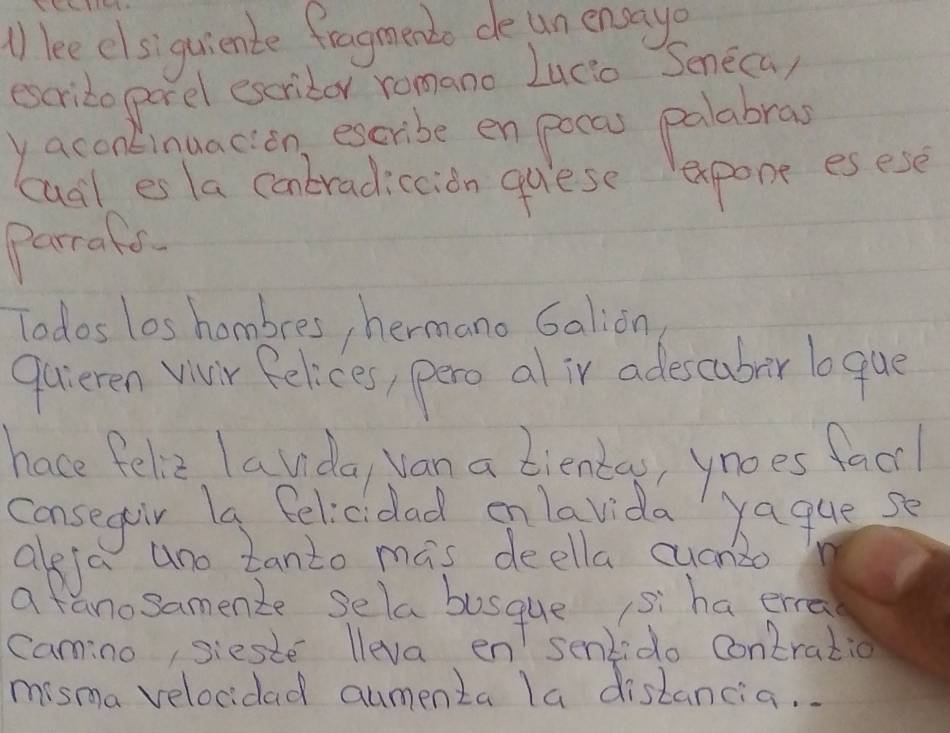 1) lee el siguiente fragmento de un ensayo
escrito por el escritor romano Lucio Seneca,
y acontinuación escribe en pocas palabras
cuál es la contradicción que se expone es ese
parrafo-
Todos los hombres, hermano Galión,
quieren vivir felices, pero al ir adescubrir lo que
hace feliz la vida, van a tientas, y no es facil
conseguir la felicidad en la vida ya que se
aleja uno tanto más de ella cuanto
afanosamente se la busque, si ha
camino, si esté lleva en sentido contratio
misma velocidad aumenta la distancia...